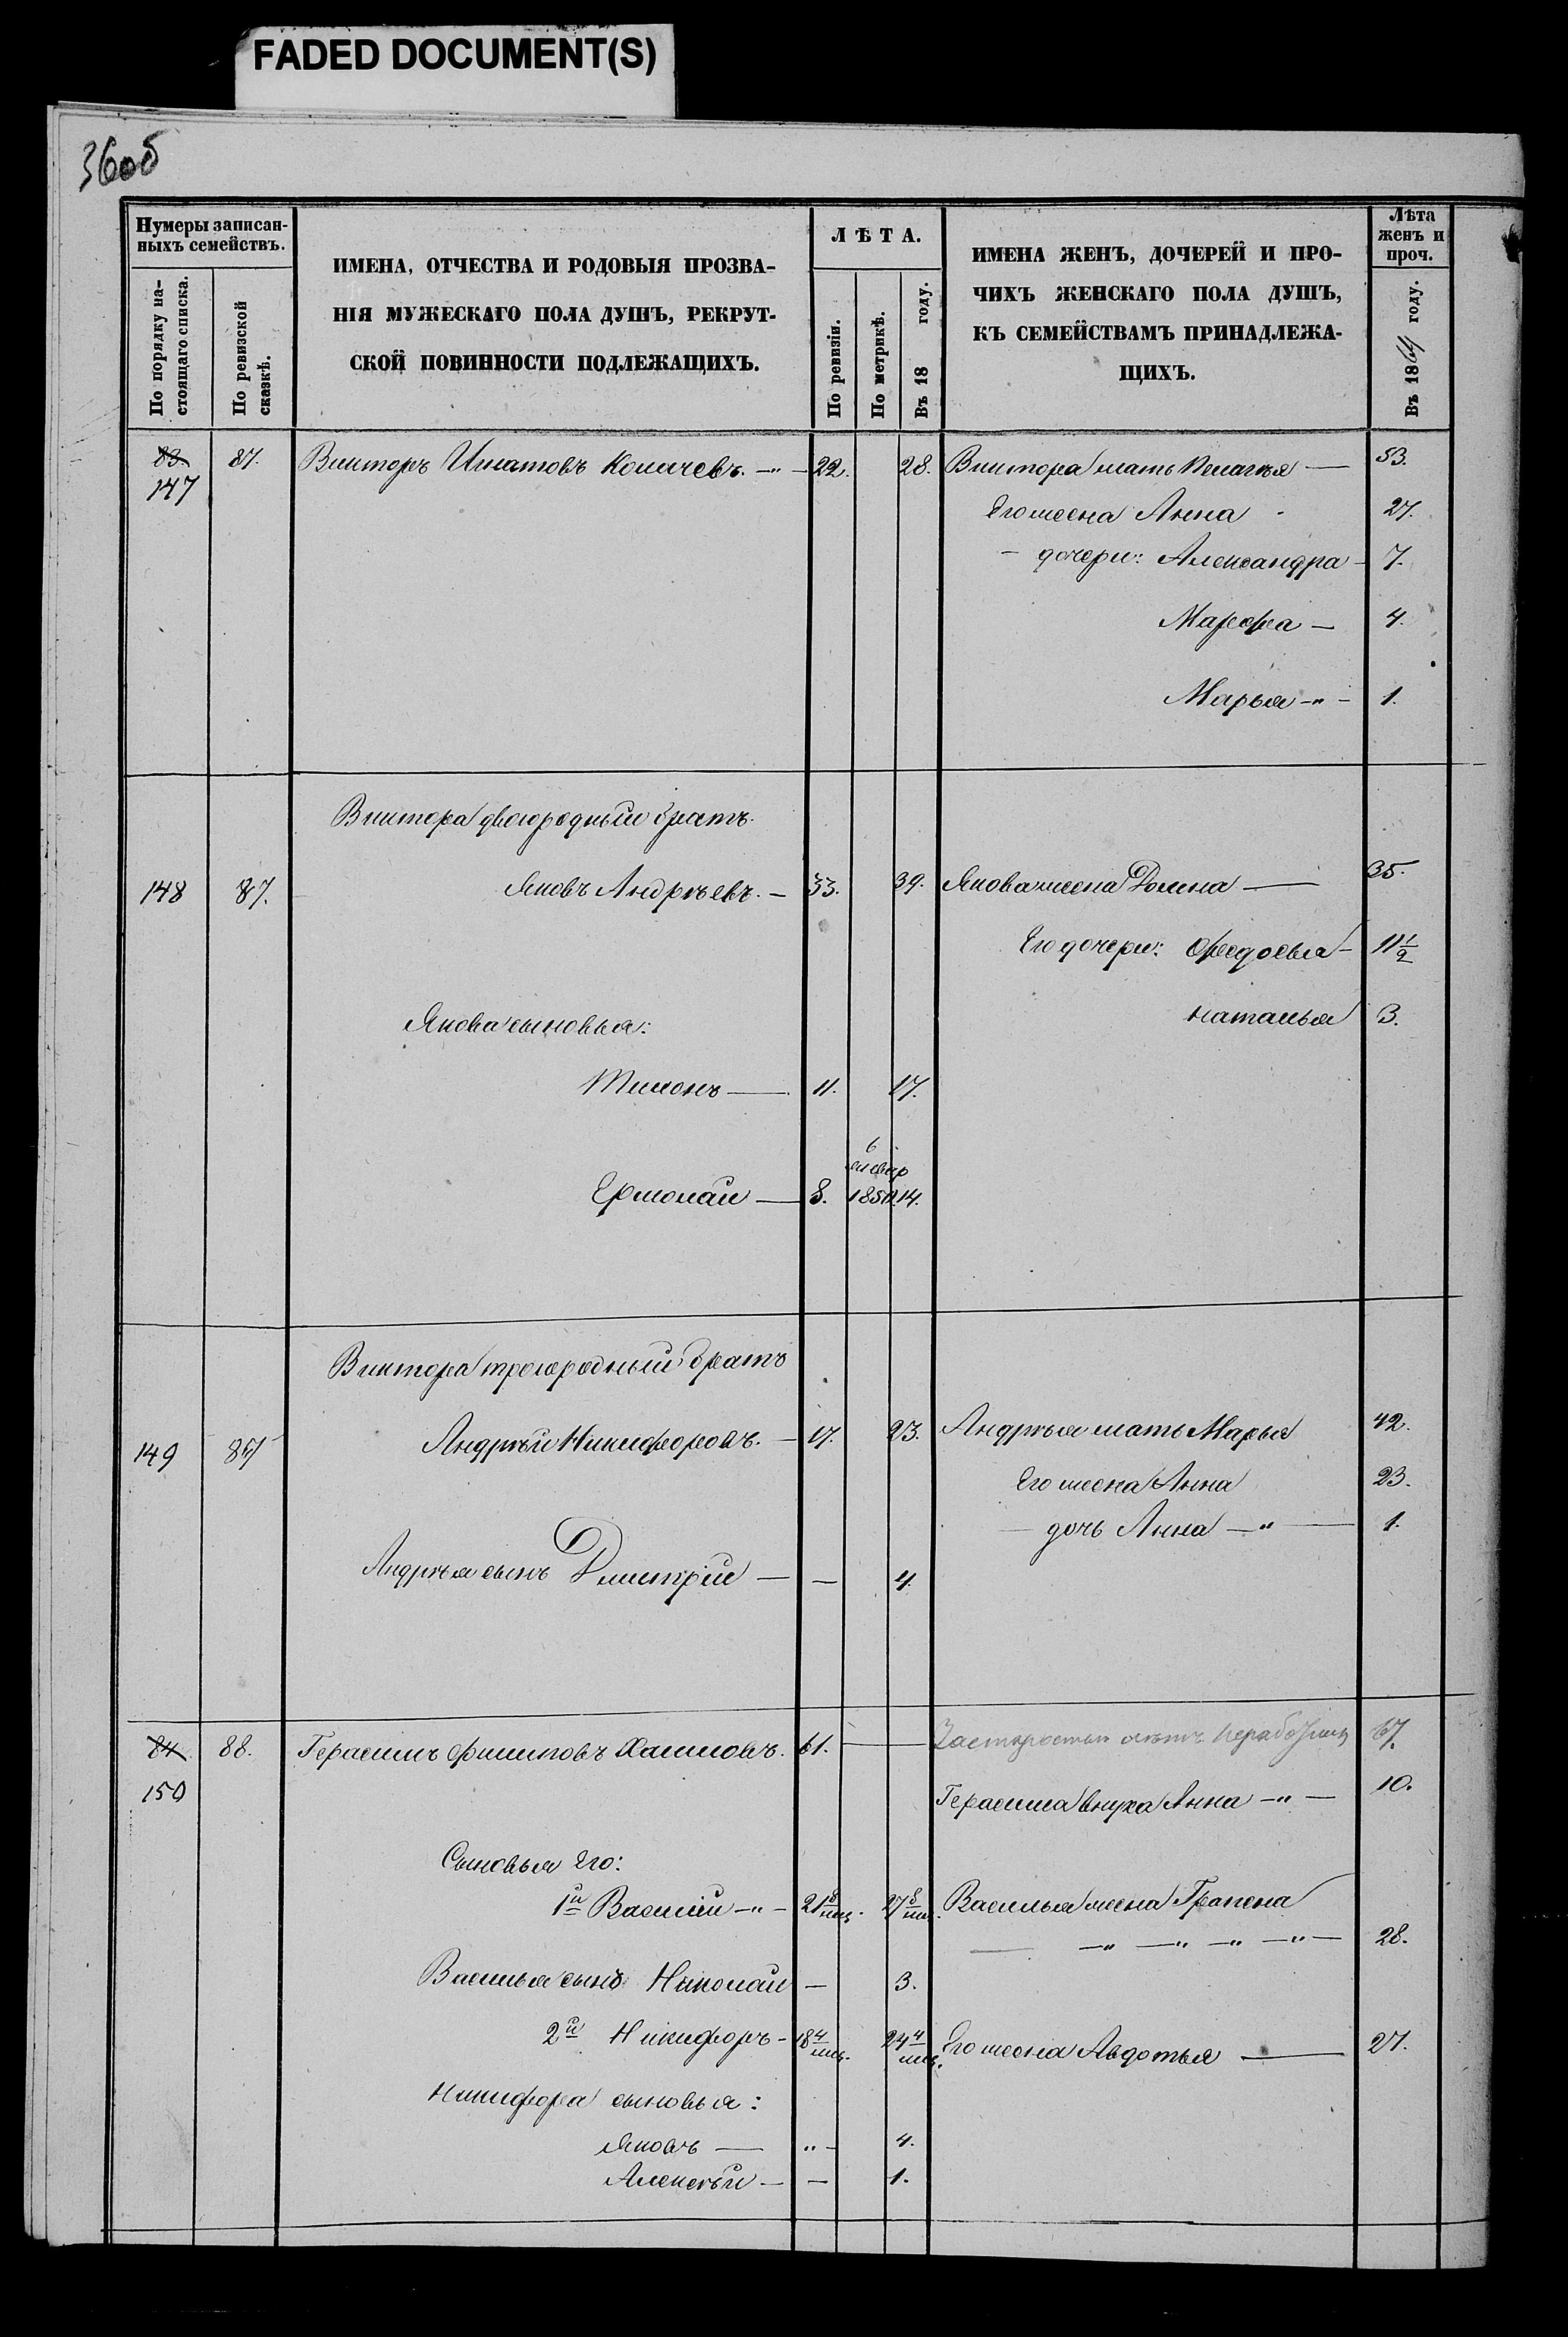 FADED DOCUMENT(S)
36об
Нумеры записан-
ныхъ семействъ.
По порядку на-
стоящаго списка.
По ревизской
сказкѣ.
ИМЕНА, ОТЧЕСТВА И РОДОВЫЯ ПРОЗВА-
НІЯ МУЖЕСКАГО ПОЛА ДУШЪ, РЕКРУТ-
СКОЙ ПОВИННОСТИ ПОДЛЕЖАЩИХЪ.
ЛѢТА.
По ревизіи.
По метрикѣ.
Въ 18 году.
ИМЕНА ЖЕНЪ, ДОЧЕРЕЙ И ПРО-
ЧИХЪ ЖЕНСКАГО ПОЛА ДУШЪ,
КЪ СЕМЕЙСТВАМЪ ПРИНАДЛЕЖА-
ЩИХЪ.
Лѣта
женъ и
проч.
Въ 1864 году.
83 87. Викторъ Игнатовъ Комачевъ. 22. 28. Виктора мать Пелагея 53.
147
Его жена Анна 27.
дочери: Александра 7.
Марѳа 4.
Марья 1.
Виктора двоюродный братъ
148 87. Яковъ Андрѣевъ. 33. 39. Якова жена Домна 35.
Его дочери: Федосья 11 1/2
Якова сыновья: Наталья 3.
Тимонъ 11. 17.
6
Ермолай 8. 14.
Виктора троюродный братъ
149 87 Андрѣй Никифоровъ. 17. 23. Андрѣя мать Марья 42.
Его жена Анна 23.
дочь Анна 1.
Андрѣя сынъ Дмитрій 4.
84 88. Герасимъ Филиповъ 61. За старостью лѣтъ 67.
150 Герасима внука Анна 10.
Сыновья Его:
1й Василій 21 8/мц. 27 8/мц. Василья жена Грапена
28.
Василья сынъ Николай 3.
2й Никифоръ 18 4/мц. 24 4/мц. Его жена Авдотья 27.
Никифора сыновья:
Яковъ 4.
Алексѣй 1.